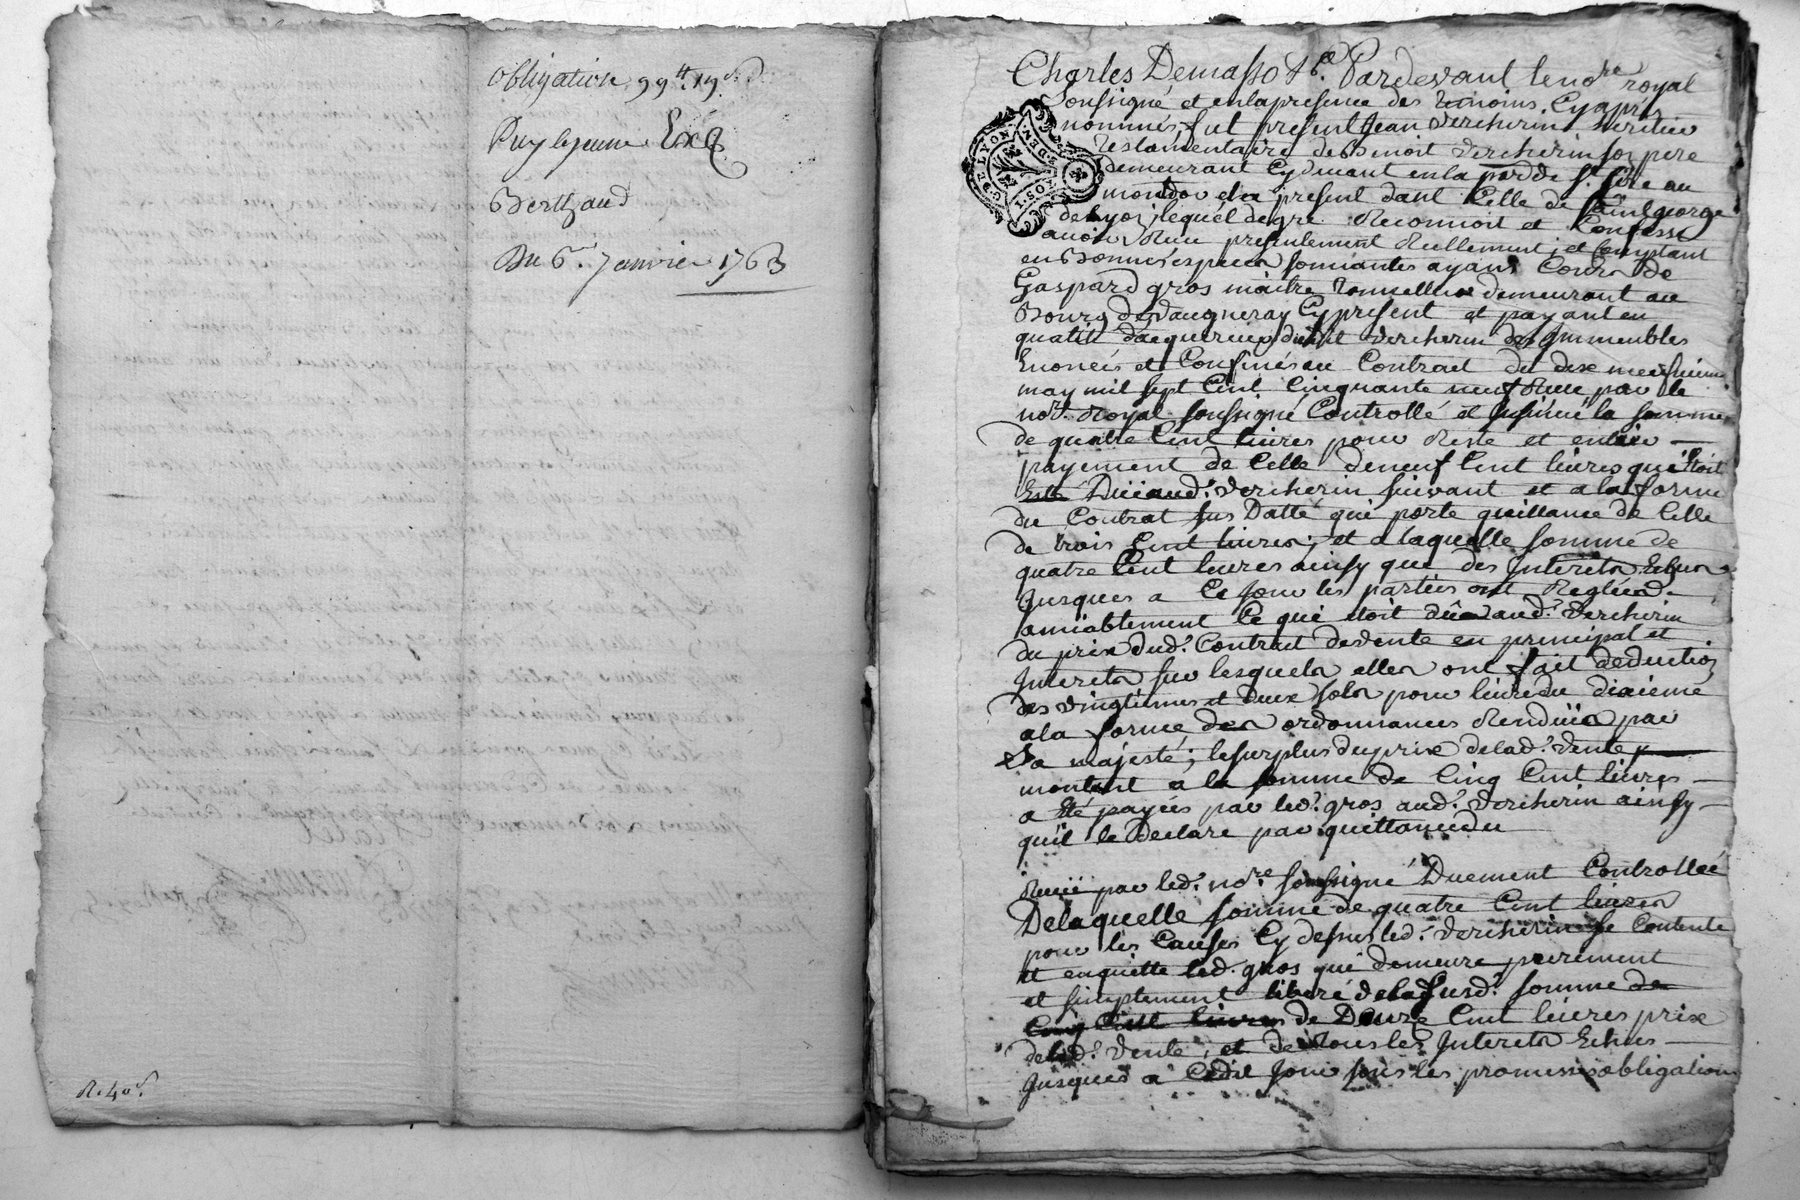 obligation 99tt 19s
Puy le jeune Exp
Berthaud
Du 6e. Janvier 1763
R. 40s.
Charles Demasso Pardevant le nore royal
soussigné et en la presence des temoins Cy apres
nommés fut present Jean Vercherin heritier
testamentaire de Benoit Vercherin son pere
demeurant Cy devant en la parde de St.
et a present dans Celle de Saint george
de Lyon, lequel de gré Reconnoit et Confesse
avoir Receu presentement Reellement, et Comptant
en Bonnes especes sonnantes ayant Cours de
Gaspard gros maitre tonnellier demeurant au
Bourg de Vaugneray Cy present et payant en
qualité d'acquereur dudit Vercherin des Immeubles
Enoncés et Confinés au Contrat du dix neufvieme
may mil sept Cent Cinquante neuf Receu par le
nore. Royal soussigné Controllé et Insinué la somme
de quatre Cent livres pour Reste et entier
payement de Celle de neuf Cent livres qui étoit
Düe aud. Vercherin suivant et a la forme
du Contrat sus Datté qui porte quittance de Celle
de trois Cent livres; et a laquelle somme de
quatre Cent livres ainsy que des Interets Echus
Jusques a Ce Jour les parties ont Reglées
amiablement Ce qui étoit dû aud. Vercherin
du prix dud. Contrat de Vente en principal et
Interets sur lesquels elles ont fait deduction
des vingtiemes et deux sols pour livre du dixieme
a la forme des ordonnances Rendües par
Sa majesté; le surplus du prix de lad. Vente
montant a la somme de Cinq Cent livres
a été payées par led. gros aud. Vercherin ainsy
qu'il le Declare par quittance du
Receu par led. nore. soussigné Duement Controllée
De laquelle somme de quatre Cent livres
pour les Causes Cy dessus led. Vercherin se Contente
et en quitte led. gros qui demeure purement
et simplement liberé de la susd. somme de
Cinq Cent livres de Douze Cent livres prix
de lad. Vente, et de tous les Interets Echus
Jusques a Cedit Jour sous les promesses obligations